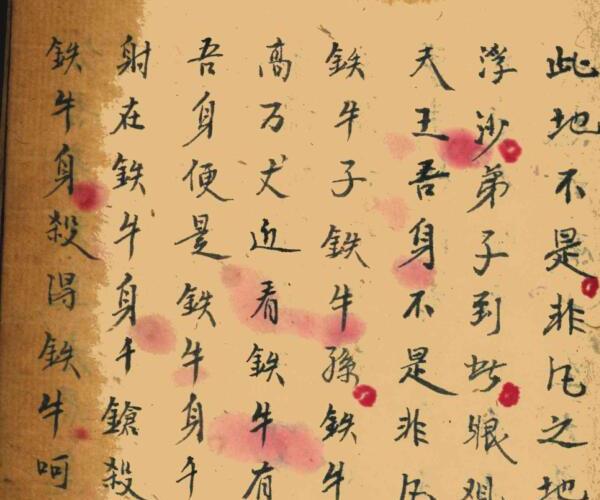 此地不是非凡之地
浮沙弟子到此眼观
天王吾身不是非凡
鉄牛子鉄牛孫鉄牛
高万丈近看鉄牛有
吾身便是鉄牛身千
射在鉄牛身千鎗殺
鉄牛身殺鉄牛呵